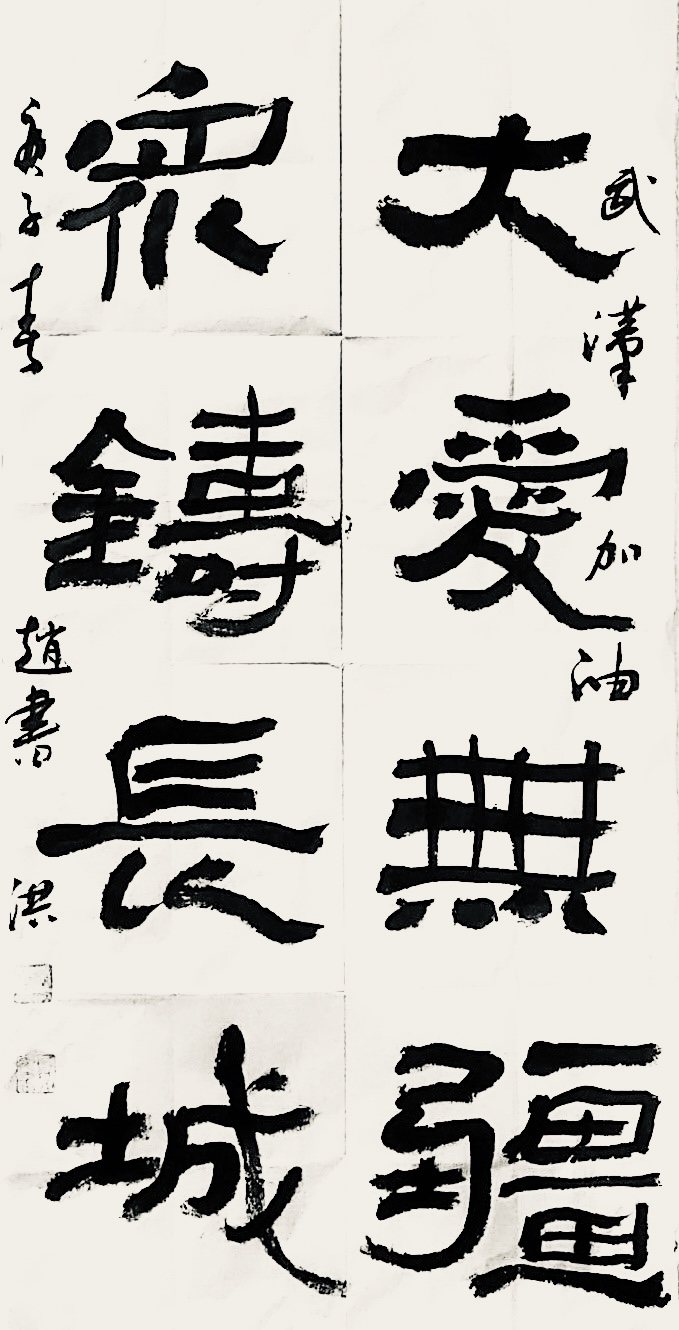 武漢加油
大愛無疆
衆鑄長城
庚子春 趙書洪